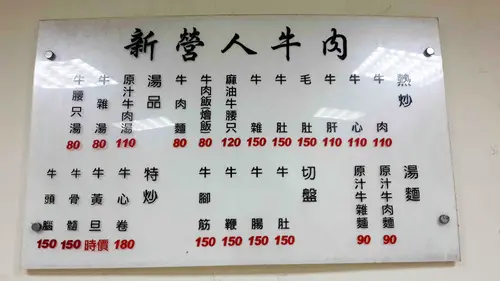 新營人牛肉
熱炒
牛肉 110
牛心 110
牛肝 110
毛肚 150
牛肚 150
牛雜 150
麻油牛腰只 120
牛肉飯(燴飯) 80
牛肉麵 80
湯品
原汁牛肉湯 110
牛雜湯 80
牛腰只湯 80
湯麵
原汁牛肉麵 90
原汁牛雜麵 90
切盤
牛肚 150
牛腸 150
牛鞭 150
牛腳筋 150
特炒
牛心卷 180
牛黃旦 時價
牛骨髓 150
牛頭腦 150